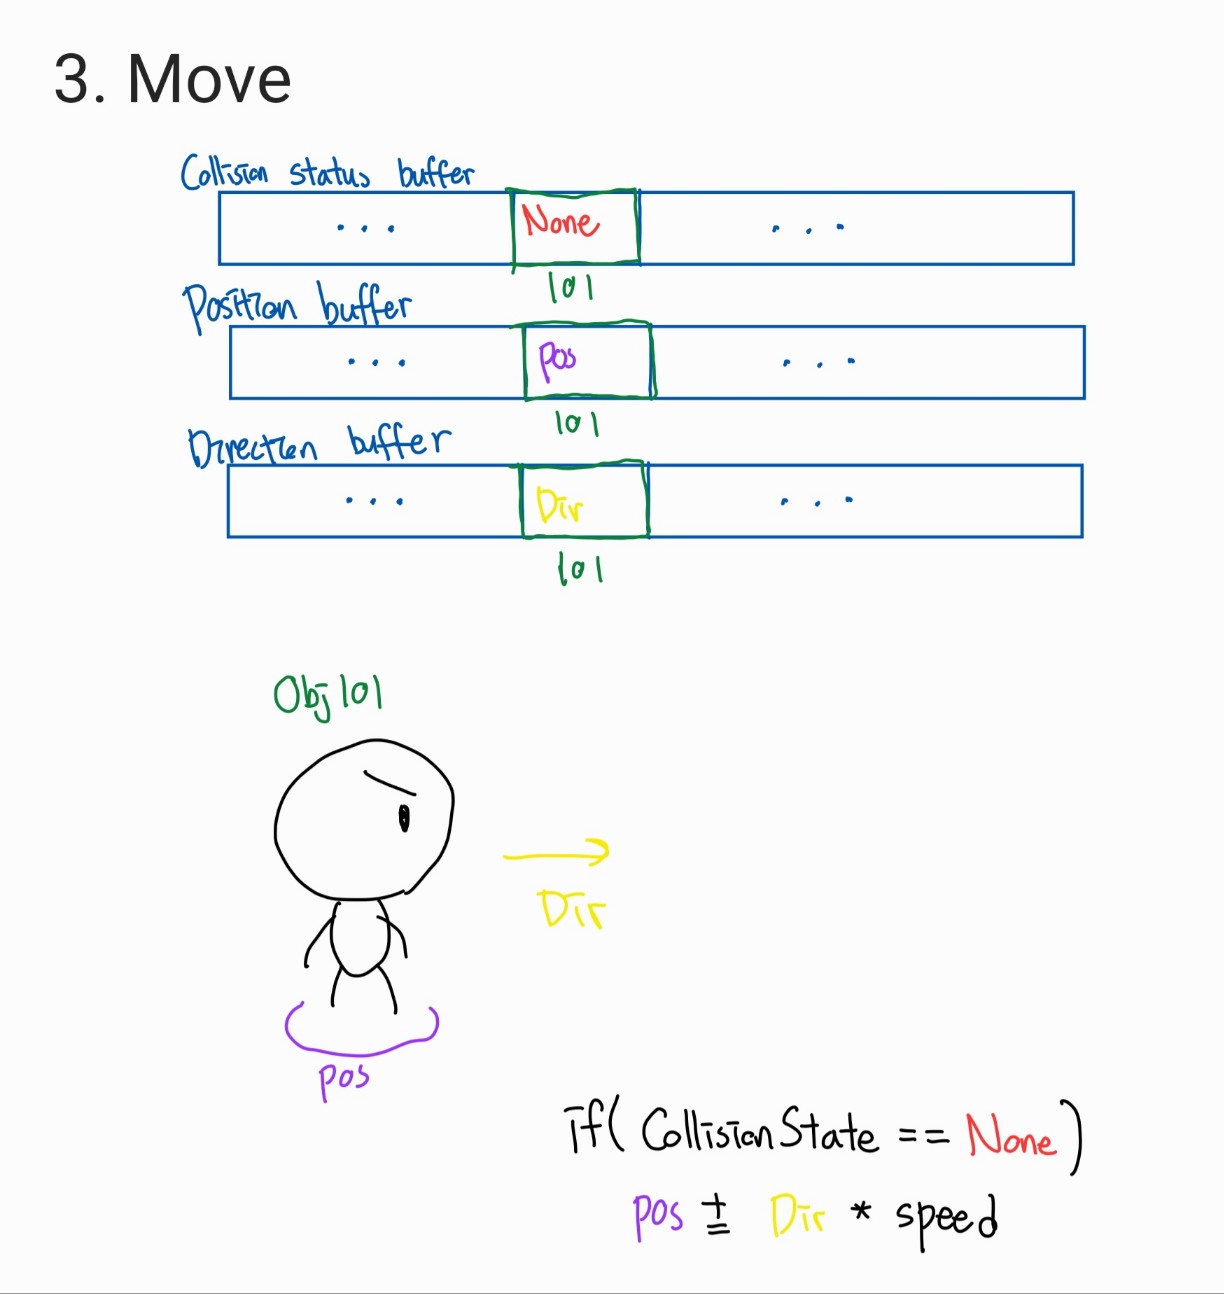 3. Move
Collision status buffer
... None ...
101
Position buffer
... pos ...
101
Direction buffer
... Dir ...
101
Obj 101
Dir
pos
if( CollisionState == None )
pos += Dir * speed